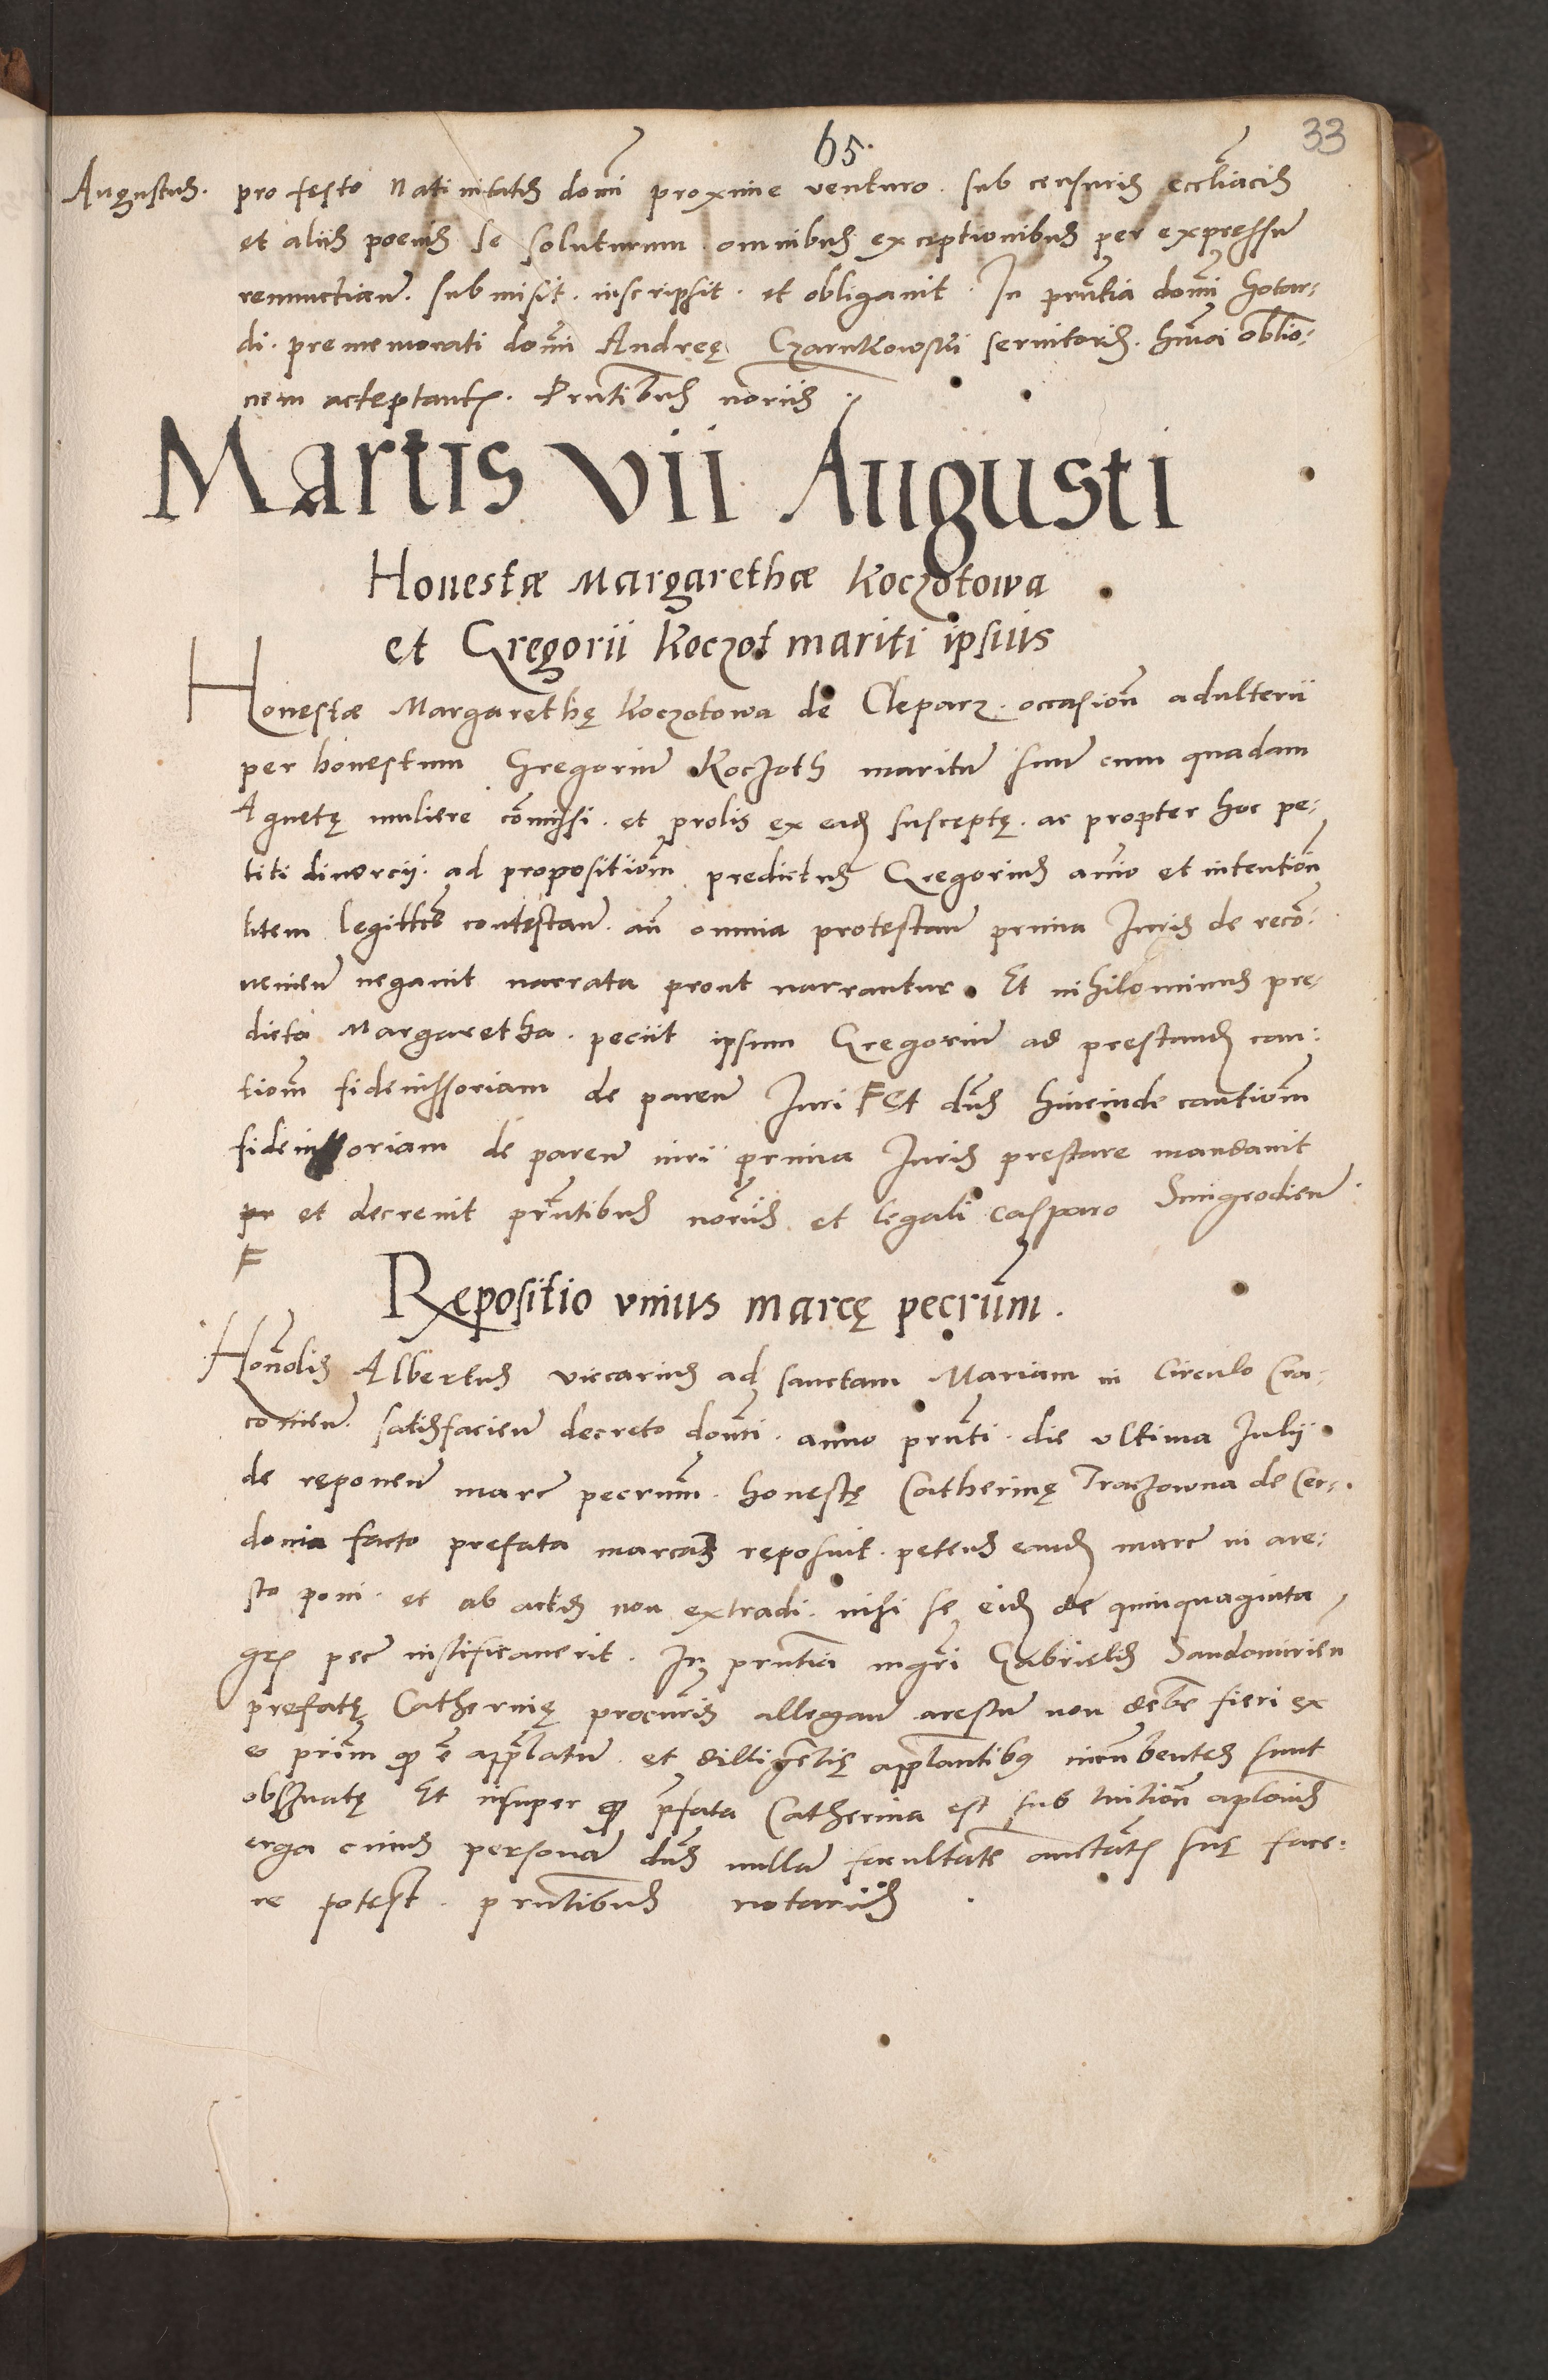 65.
33
Augustus.
pro festo Nativitatis domī proxime venturo. sub censuris eccl̄iacis
et aliis poenis se soluturum omnibus exceptionibus per expressū
renunctian̄. submisit. inscripsit. et obligavit. In prn̄tia domī Hotar-
di. prememorati domī Andreę Czarnkowskii servitoris. hm̄oi oblīo-
nem acceptantꝭ. Prn̄tibus nōriis.
Martis vii Augusti
Honestæ Margarethæ Koczotowa
et Gregorii Koczot mariti ipsius
Honestæ Margarethę Koczotowa de Cleparz. occasion̄ adulterii
per honestum Gregoriū Koczoth maritū suū cum quadam
Agnetę muliere cōmissi. et prolis ex eadꝫ susceptę. ac propter hoc pe-
titi divorcij. ad proposition̄ predictus Gregorius anīo et intention̄
litem legittīe contestan̄. an̄ omnia protestan̄ primā Iuris de recō-
venien̄ negavit narrata prout narrantur. Et nihilominus pre-
dicta Margaretha. peciit ipsum Gregoriū ad prestandꝫ cau-
tiom̄ fideiussoriam de paren̄ Iuri F Et dūs hincinde cautiom̄
fideiussoriam de paren̄ iuri primā Iuris prestare mandavit
pr et decrevit prn̄tibus nōriis et legali Casparo Smigrodien̄.
F
Repositio unius marcę pecrūm.
Honōlis Albertus viccarius ad sanctam Mariam in Circulo Cra-
covien̄. satisfacien̄ decreto domī. anno prn̄ti. die ultima Iulij
de reponen̄ marc̄ pecrum̄. honestę Catherinę Traczowna de Cer-
donia facto prefata marcam reposuit. petens eandꝫ marc̄ in are-
sto poni. et ab actis non extradi. nisi se eidꝫ de quinquaginta
grꝭ pec̄ iustificaverit. In prn̄tia mgr̄i Gabrielis Sandomirien̄
prefatę Catherinę procur̄is allegan̄ arestū non debe fieri ex
eo primū qꝫ ē app̄latum. et dilligentię app̄lantibus incūbentes sunt
observatę Et insuper qꝫ p̄fata Catherina est sub tuition̄ ap̄lorus
erga cuius personā dūs nullā facultatē auctātꝭ suę face-
re potest. prn̄tibus notariis.